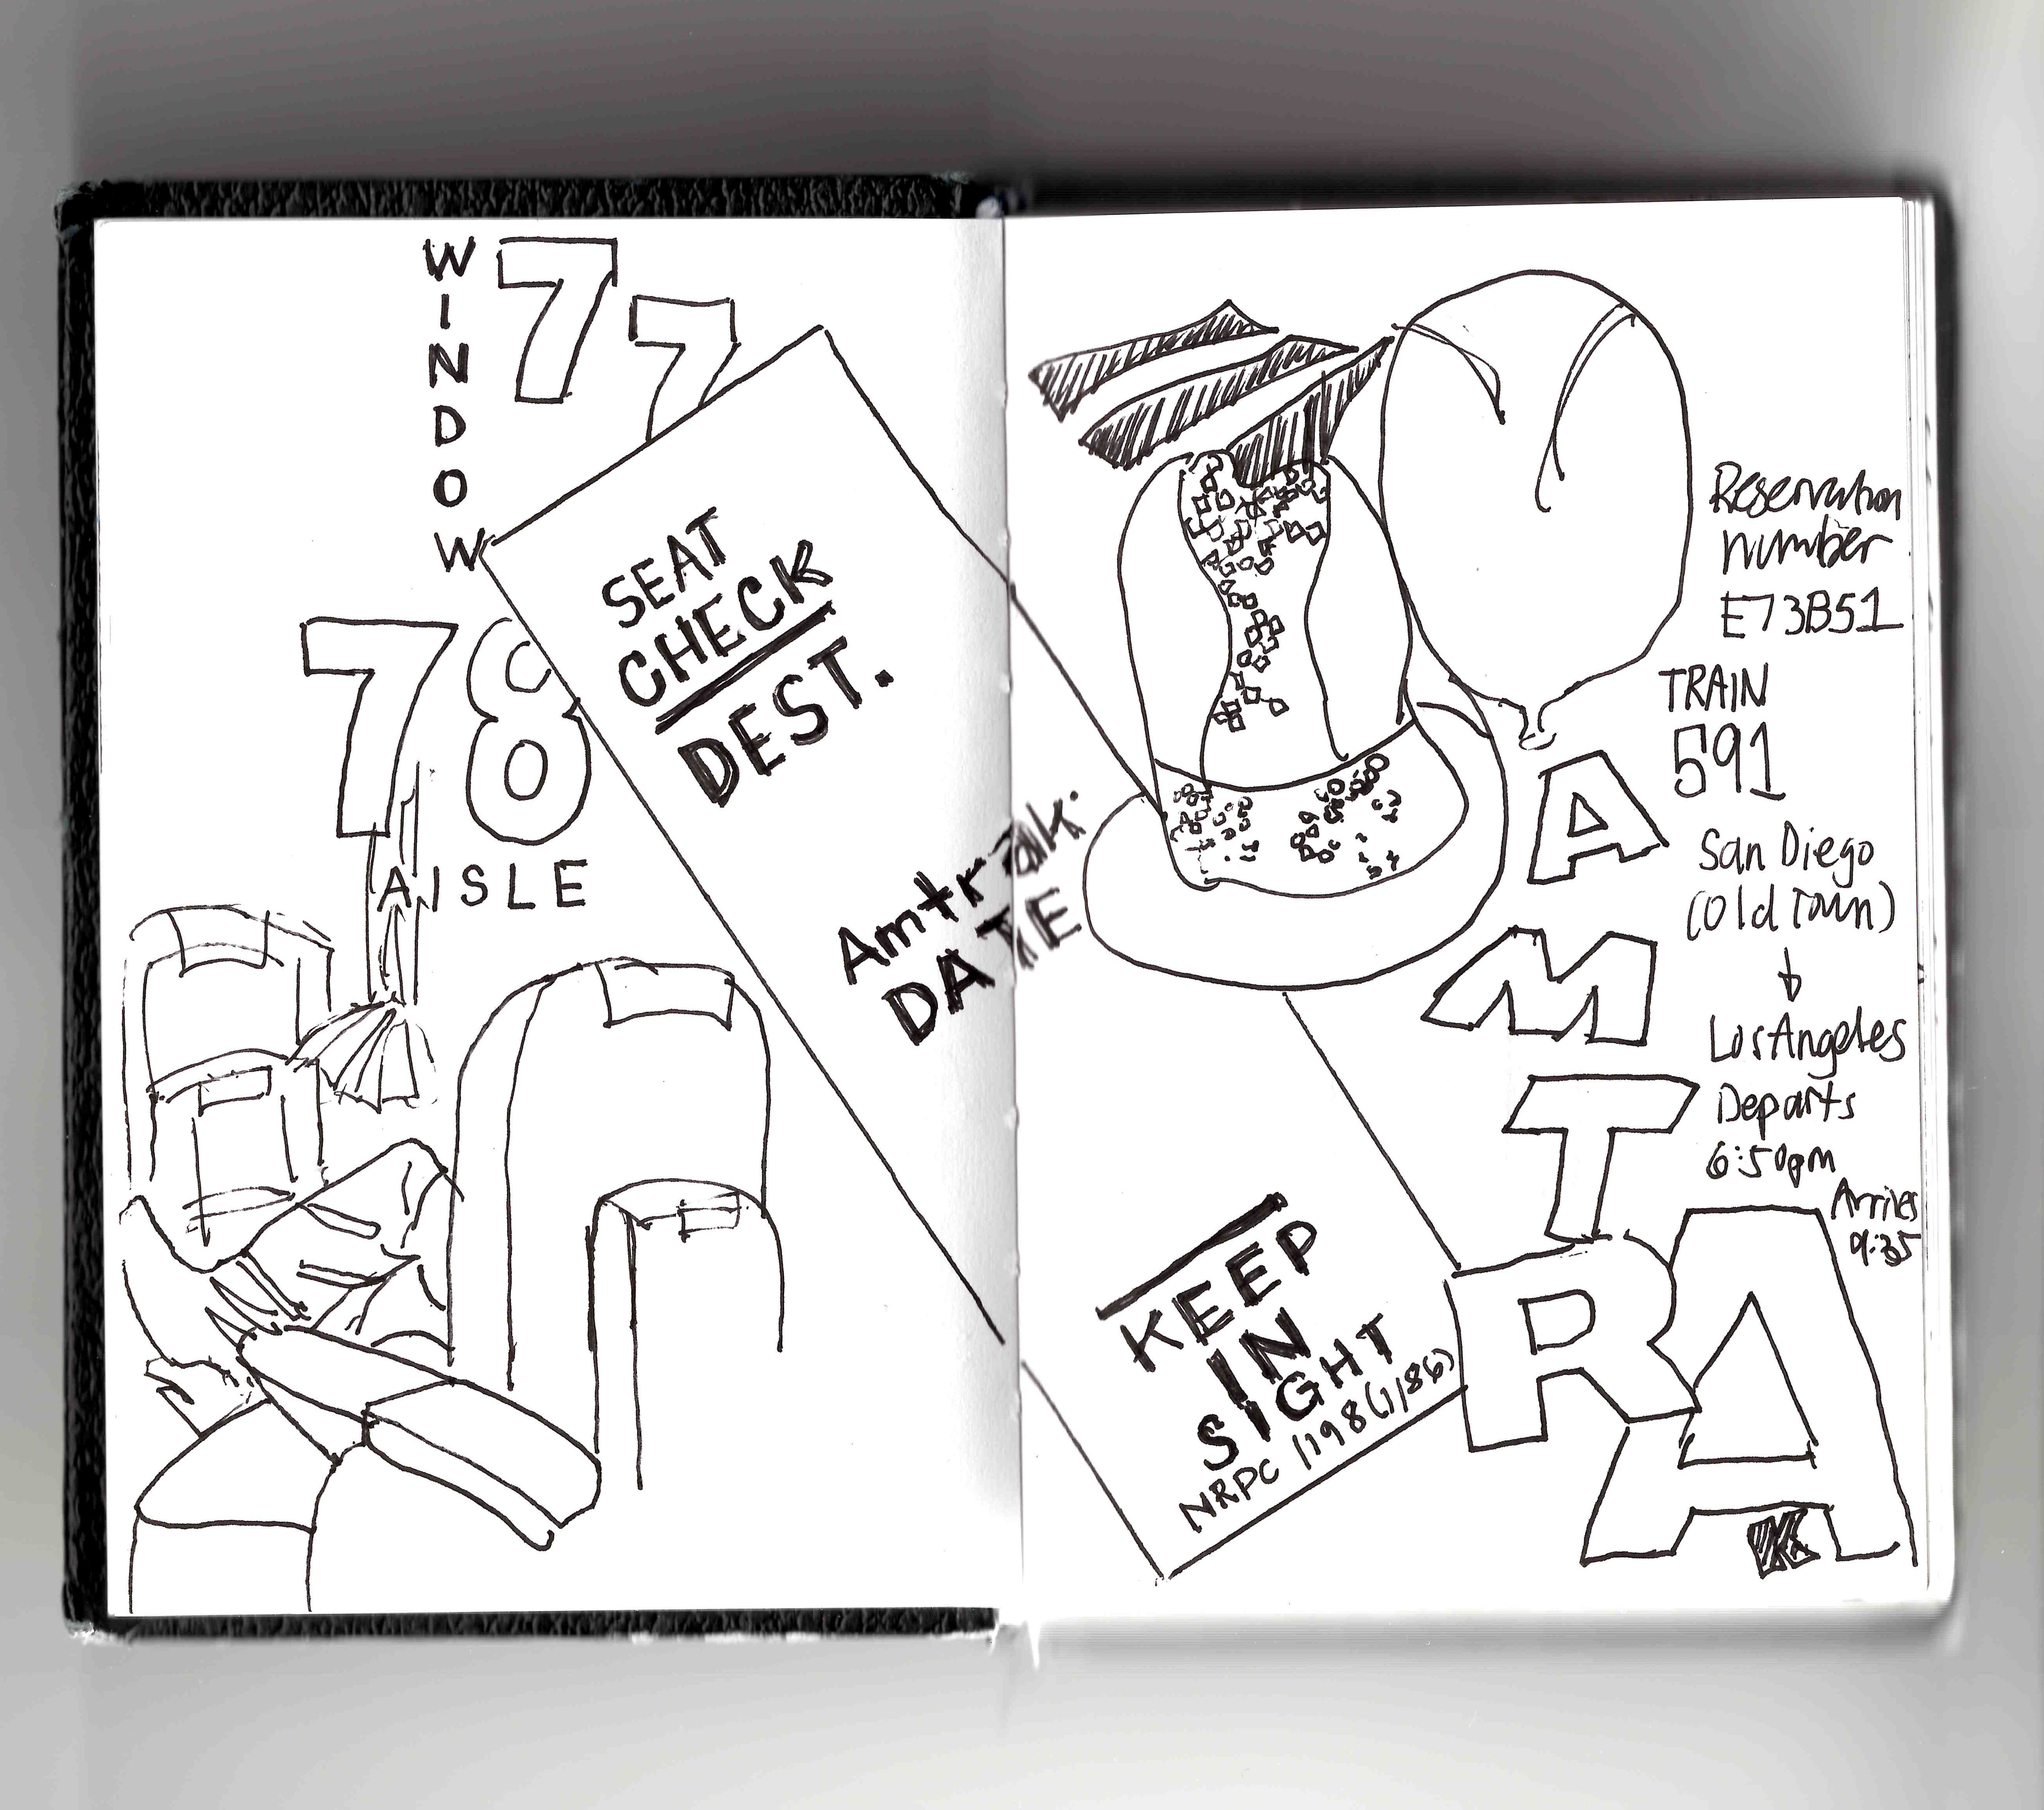 WINDOW
77
78
AISLE
SEAT
CHECK
DEST.
Amtrak
DATE
KEEP
IN
SIGHT
NRPC 1198 (1/86)
Reservation
number
E73B51
TRAIN
591
San Diego
(Old Town)
Los Angeles
Departs
6:50pm
Arrives
9:35
AMTRAK